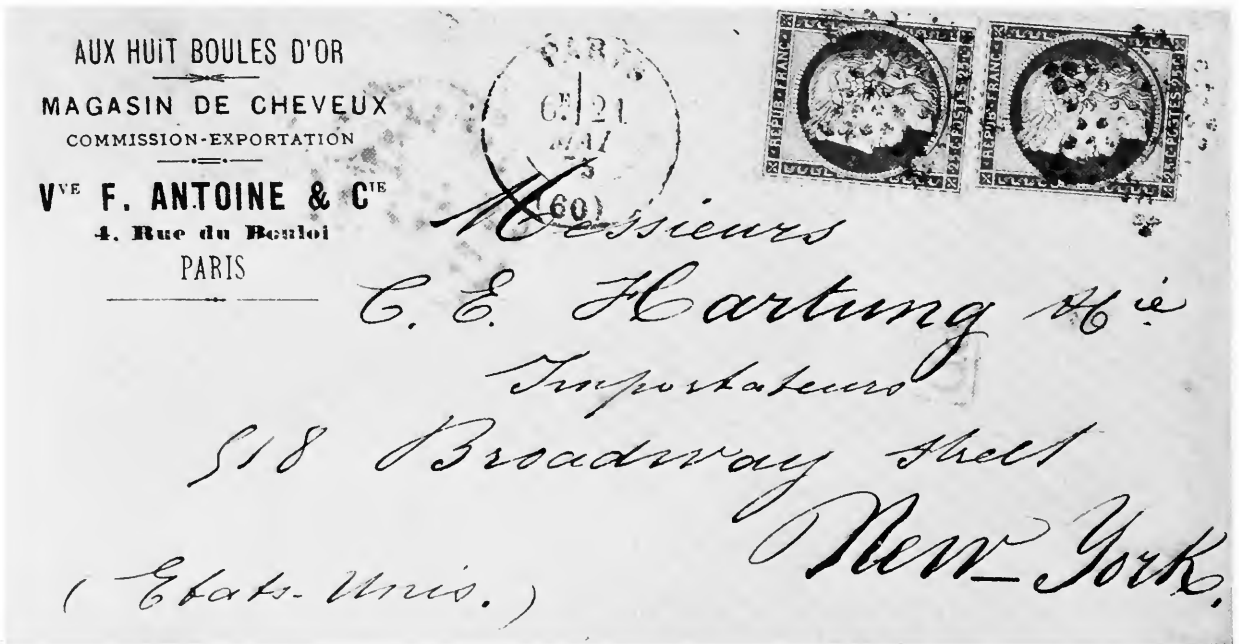 AUX HUIT BOULES D'OR
MAGASIN DE CHEVEUX
COMMISSION-EXPORTATION
VVE F. ANTOINE & CIE
4. Rue du Bouloi
PARIS
PARIS
6E 21
MAI
(60)
REPUB·FRANC·
25·C·POSTES·25·C
REPUB·FRANC·
25·C·POSTES·25·C
Messieurs
C. E. Hartung & Cie
Importateurs
518 Broadway street
New-York.
(Etats-Unis.)